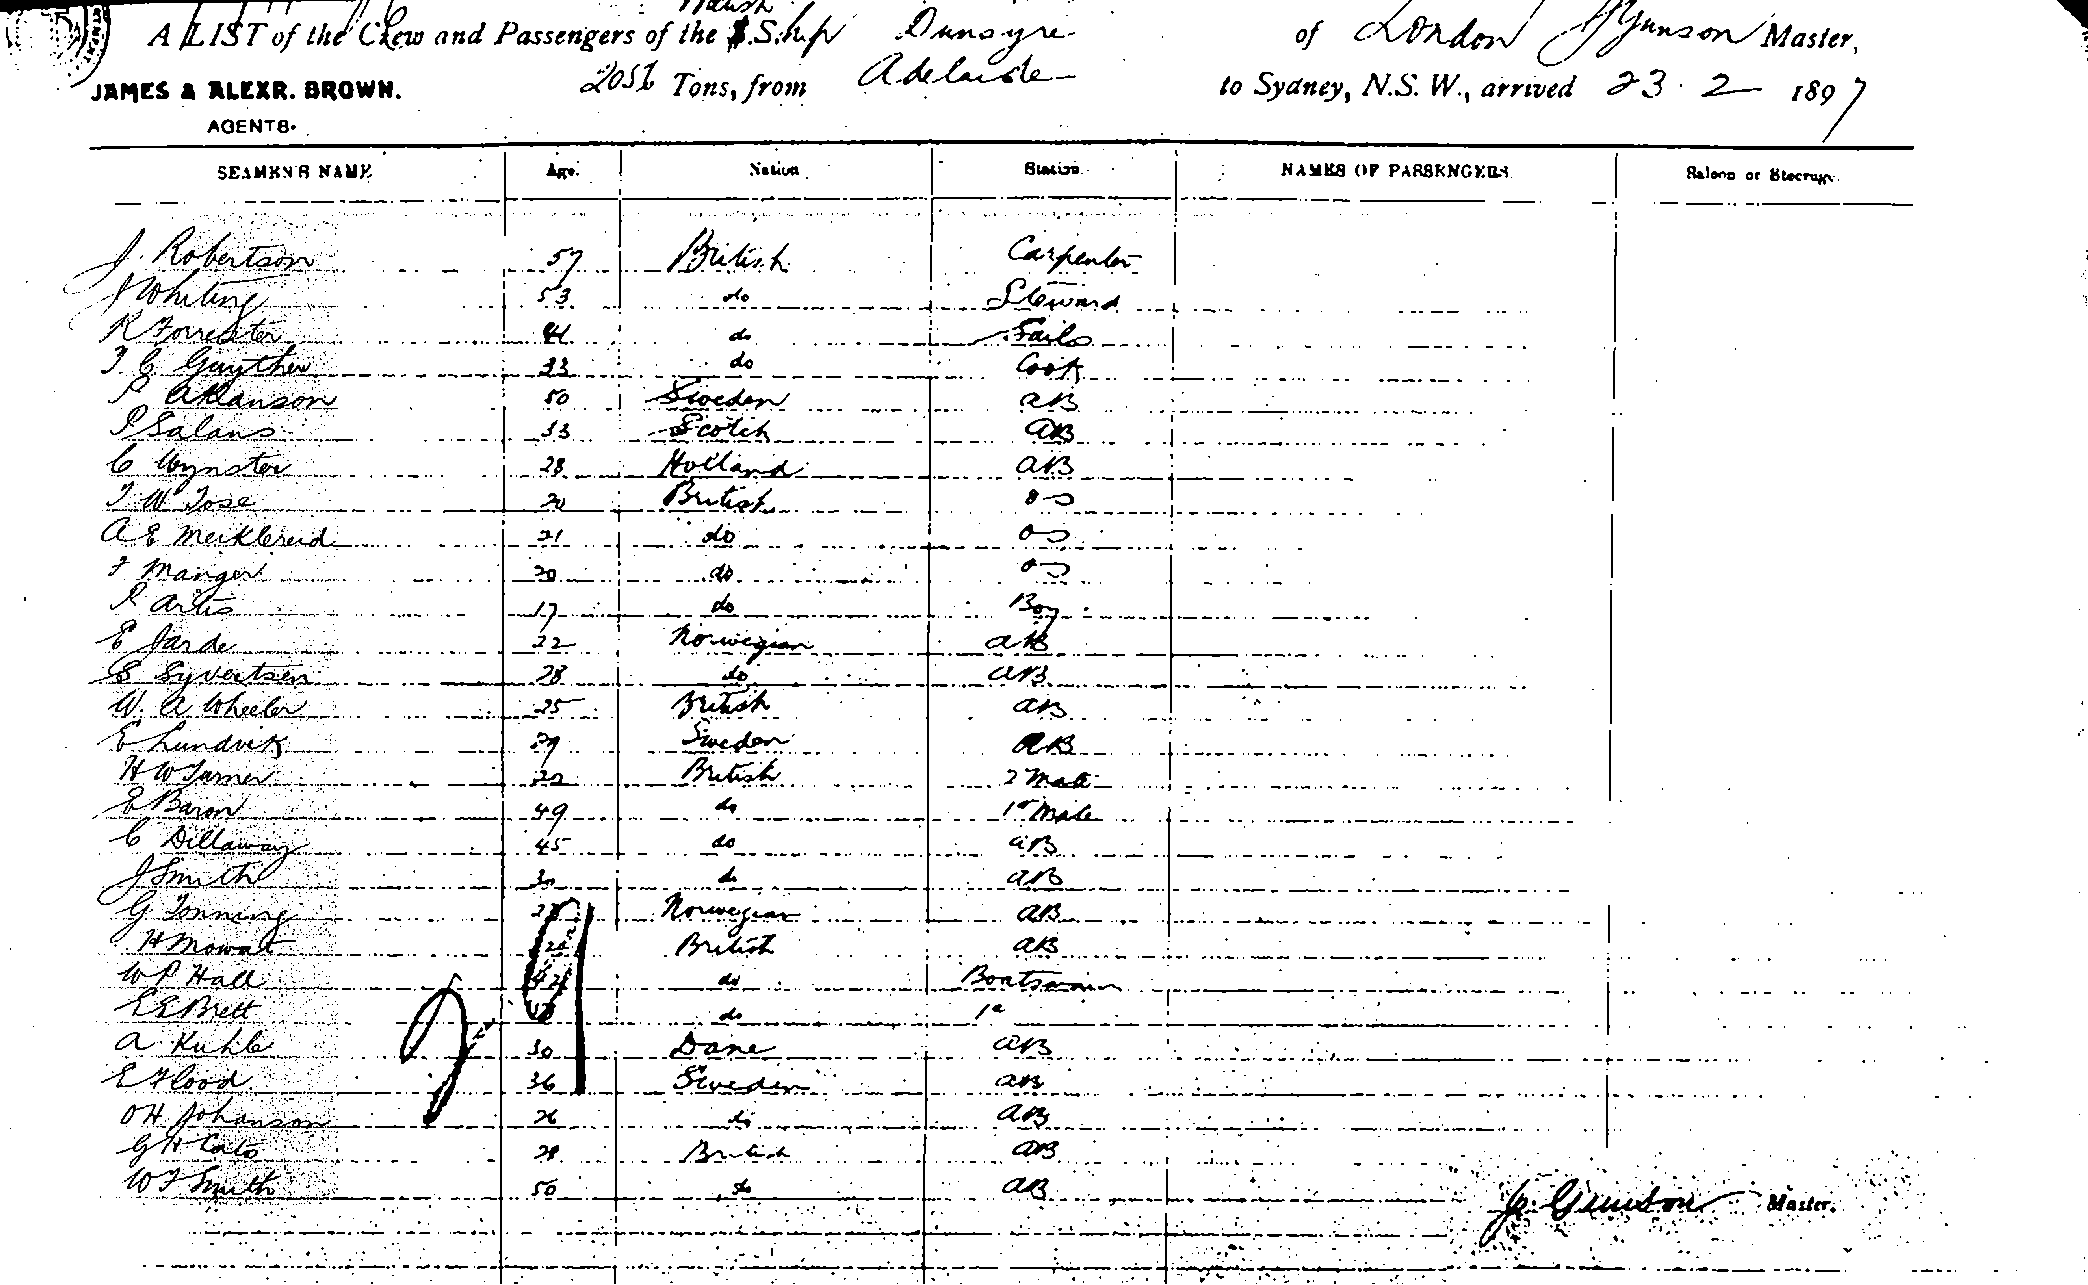 A LIST of the Crew and Passengers of the S. Ship Dunsyre of London Master,
2056 Tons, from Adelaide to Sydney, N.S.W., arrived 23.2 1897
JAMES & ALEXR. BROWN.
AGENTS.
SEAMEN'S NAME Age. Nation Station NAMES OF PASSENGERS Saloon or Steerage
J. Robertson 57 British Carpenter
J Whiting 53 do Steward
R Forrester 41 do Sails
T C Gayther 33 do Cook
P 50 Sweden AB
P Salans 33 Scotch AB
C Wynster 28 Holland AB
T W Tose 20 British OS
A E Meiklereid 21 do OS
F Manger 20 do OS
P Artis 17 do Boy
E Jarde 22 Norwegian AB
S Syvertsen 28 do AB
W. A Wheeler 25 British AB
E Lundvik 29 Sweden AB
H W Turner 22 British 2 Mate
E Baron 49 do 1st Mate
C Dillaway 45 do AB
J Smith 30 do AB
G Tonning Norwegian AB
H Mowat British AB
W P Hall 42 do Boatswain
E E Brett do
A Kuhle 30 Dane AB
E Flood 36 Sweden AB
O H Johanson 26 do AB
G H Cato 28 British AB
W F Smith 50 do AB
Master.